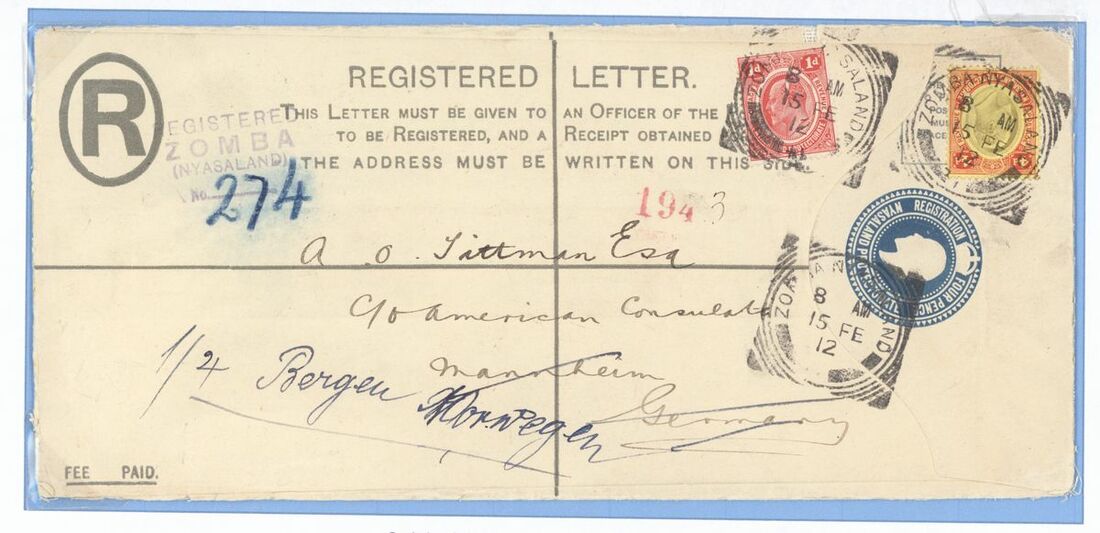 R
REGISTERED LETTER.
THIS LETTER MUST BE GIVEN TO AN OFFICER OF THE
TO BE REGISTERED, AND A RECEIPT OBTAINED
THE ADDRESS MUST BE WRITTEN ON THIS SIDE.
EGISTERE
ZOMBA
(NYASALAND)
No.
274
1943
A. O. Tittman Esq
c/o American Consulate
Mannheim
Germany
1/4 Bergen
Norwegen
FEE PAID.
1d 1d
SALAND
8 AM
15 FE
12
ZOMBA NYASALAND
8 AM
15 FE
12
NYASALAND PROTECTORATE
REGISTRATION
FOUR PENCE
ZO BA N ND
8 AM
15 FE
12